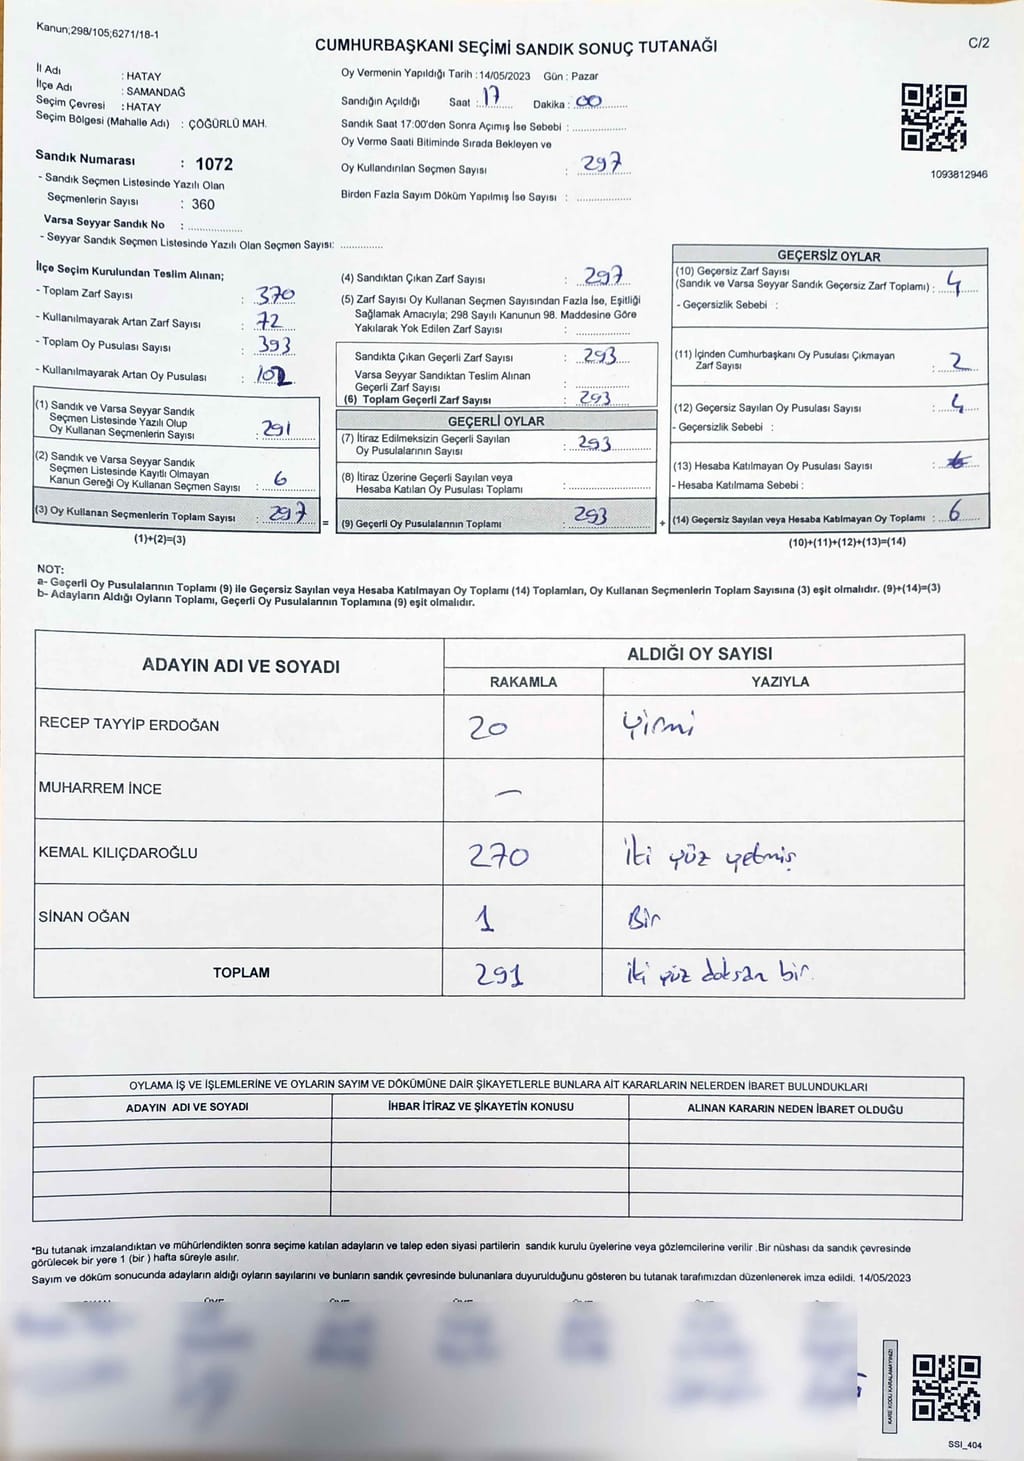 Kanun;298/105;6271/18-1
CUMHURBAŞKANI SEÇİMİ SANDIK SONUÇ TUTANAĞI
C/2
İl Adı : HATAY
İlçe Adı : SAMANDAĞ
Seçim Çevresi : HATAY
Seçim Bölgesi (Mahalle Adı) : ÇÖĞÜRLÜ MAH.
Sandık Numarası : 1072
- Sandık Seçmen Listesinde Yazılı Olan
Seçmenlerin Sayısı : 360
Varsa Seyyar Sandık No : ..............
- Seyyar Sandık Seçmen Listesinde Yazılı Olan Seçmen Sayısı: ............
Oy Vermenin Yapıldığı Tarih : 14/05/2023 Gün : Pazar
Sandığın Açıldığı Saat : 17 Dakika : 00
Sandık Saat 17:00'den Sonra Açımış İse Sebebi : ..............
Oy Verme Saati Bitiminde Sırada Bekleyen ve
Oy Kullandırılan Seçmen Sayısı : 297
Birden Fazla Sayım Döküm Yapılmış İse Sayısı : ..............
1093812946
İlçe Seçim Kurulundan Teslim Alınan;
- Toplam Zarf Sayısı : 370
- Kullanılmayarak Artan Zarf Sayısı : 72
- Toplam Oy Pusulası Sayısı : 393
- Kullanılmayarak Artan Oy Pusulası : 102
(1) Sandık ve Varsa Seyyar Sandık
Seçmen Listesinde Yazılı Olup
Oy Kullanan Seçmenlerin Sayısı : 291
(2) Sandık ve Varsa Seyyar Sandık
Seçmen Listesinde Kayıtlı Olmayan
Kanun Gereği Oy Kullanan Seçmen Sayısı : 6
(3) Oy Kullanan Seçmenlerin Toplam Sayısı : 297
(1)+(2)=(3)
=
(4) Sandıktan Çıkan Zarf Sayısı : 297
(5) Zarf Sayısı Oy Kullanan Seçmen Sayısından Fazla İse, Eşitliği
Sağlamak Amacıyla; 298 Sayılı Kanunun 98. Maddesine Göre
Yakılarak Yok Edilen Zarf Sayısı : ..............
Sandıkta Çıkan Geçerli Zarf Sayısı : 293
Varsa Seyyar Sandıktan Teslim Alınan
Geçerli Zarf Sayısı : ..............
(6) Toplam Geçerli Zarf Sayısı : 293
GEÇERLİ OYLAR
(7) İtiraz Edilmeksizin Geçerli Sayılan
Oy Pusulalarının Sayısı : 293
(8) İtiraz Üzerine Geçerli Sayılan veya
Hesaba Katılan Oy Pusulası Toplamı : ..............
(9) Geçerli Oy Pusulalarının Toplamı : 293
+
GEÇERSİZ OYLAR
(10) Geçersiz Zarf Sayısı
(Sandık ve Varsa Seyyar Sandık Geçersiz Zarf Toplamı) : 4
- Geçersizlik Sebebi :
(11) İçinden Cumhurbaşkanı Oy Pusulası Çıkmayan
Zarf Sayısı : 2
(12) Geçersiz Sayılan Oy Pusulası Sayısı : 4
- Geçersizlik Sebebi :
(13) Hesaba Katılmayan Oy Pusulası Sayısı :
- Hesaba Katılmama Sebebi :
(14) Geçersiz Sayılan veya Hesaba Katılmayan Oy Toplamı : 6
(10)+(11)+(12)+(13)=(14)
NOT:
a- Geçerli Oy Pusulalarının Toplamı (9) ile Geçersiz Sayılan veya Hesaba Katılmayan Oy Toplamı (14) Toplamları, Oy Kullanan Seçmenlerin Toplam Sayısına (3) eşit olmalıdır. (9)+(14)=(3)
b- Adayların Aldığı Oyların Toplamı, Geçerli Oy Pusulalarının Toplamına (9) eşit olmalıdır.
ADAYIN ADI VE SOYADI ALDIĞI OY SAYISI
RAKAMLA YAZIYLA
RECEP TAYYİP ERDOĞAN 20 Yirmi
MUHARREM İNCE —
KEMAL KILIÇDAROĞLU 270 İki yüz yetmiş
SİNAN OĞAN 1 Bir
TOPLAM 291 İki yüz doksan bir.
OYLAMA İŞ VE İŞLEMLERİNE VE OYLARIN SAYIM VE DÖKÜMÜNE DAİR ŞİKAYETLERLE BUNLARA AİT KARARLARIN NELERDEN İBARET BULUNDUKLARI
ADAYIN ADI VE SOYADI İHBAR İTİRAZ VE ŞİKAYETİN KONUSU ALINAN KARARIN NEDEN İBARET OLDUĞU
*Bu tutanak imzalandıktan ve mühürlendikten sonra seçime katılan adayların ve talep eden siyasi partilerin sandık kurulu üyelerine veya gözlemcilerine verilir .Bir nüshası da sandık çevresinde
görülecek bir yere 1 (bir ) hafta süreyle asılır.
Sayım ve döküm sonucunda adayların aldığı oyların sayılarını ve bunların sandık çevresinde bulunanlara duyurulduğunu gösteren bu tutanak tarafımızdan düzenlenerek imza edildi. 14/05/2023
KARE KODU KARALAMAYINIZ!
SSI_404